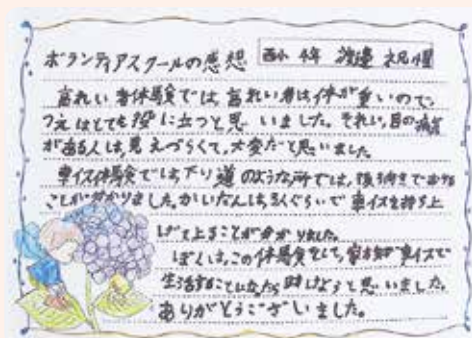 ボランティアスクールの感想 西小 4年 渡邉
高れい者体験では、高れい者は体が重いので、
つえはとても役に立つと思いました。それに、目の病気
がある人は、見えづらくて、大変だと思いました
車イス体験では、下り道のような所では、後ろ向きでおりる
ことが分かりました。かいだんは、4人ぐらいで車イスを持ち上
げて上ることが分かりました。
ぼくは、この体験をして、家族が車イスで
生活することになったら助けようと思いました。
ありがとうございました。